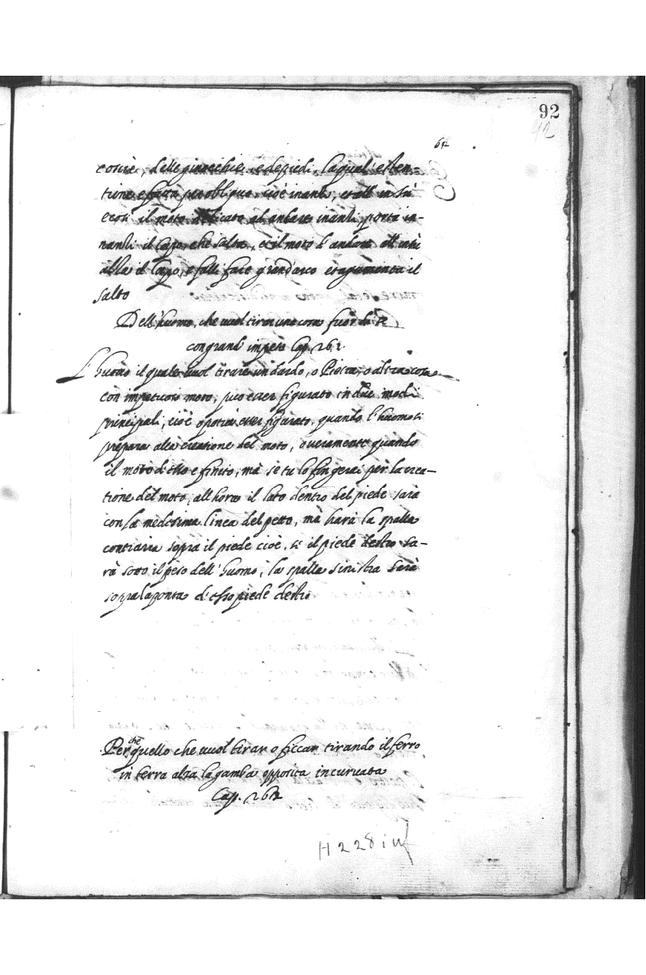 92
coscie, delle ginocchie, e de piedi, la qual esten-
tione è fatta per obliquo, cioè inanti, et all in sù
e così il moto dedicato ad andare inanti, porta in-
nanti il Capo, che salta, et il moto d'andare all insù
alza il Capo, e falli fare grand'arco et augumenta il
salto
Dell'huomo, che uuol tirar una cosa fuor di se
con grand' impeto Cap. 261.
L'huomo il quale uuol tirare un dardo, o Pietra, o altra cosa
con impetuoso moto, può esser figurato in due modi
principali, cioè o potrai esser figurato, quando l'huomo si
prepara alla creatione del moto, o ueramente quando
il moto d'esso è finito, mà se tu lo fingerai per la crea-
tione del moto, all'hora il lato dentro del piede sarà
con la medesima linea del petto, mà harà la spalla
contraria sopra il piede cioè, se il piede destro sa-
rà sotto il peso dell'huomo, la spalla sinistra sarà
sopra la ponta d'esso piede destro
Perche quello che uuol tirar o ficcar tirando il ferro
in terra alza la gamba opposita incuruata
Cap. 262
H 228 inf